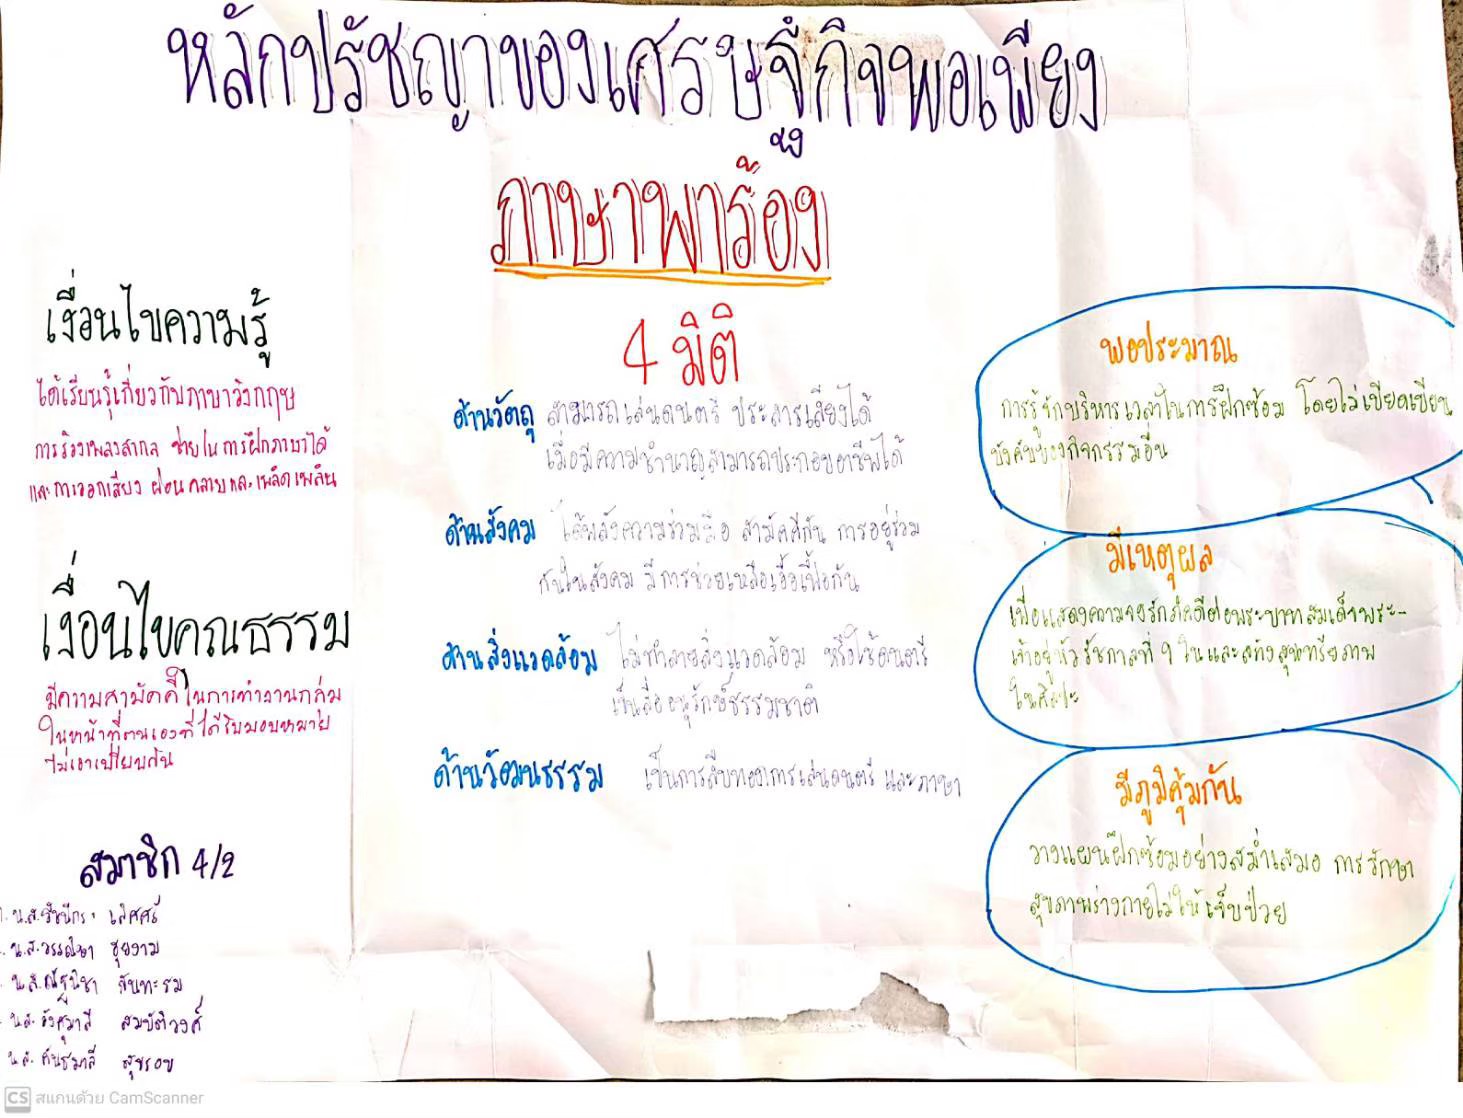 หลักปรัชญาของเศรษฐกิจพอเพียง
สู่
ภาษาพาร้อง
เงื่อนไขความรู้
ได้เรียนรู้เกี่ยวกับภาษาอังกฤษ
การร้องเพลงสากล ช่วยในการฝึกภาษาได้
และการออกเสียง ผ่อนคลายและเพลิดเพลิน
เงื่อนไขคุณธรรม
มีความสามัคคีในการทำงานกลุ่ม
ในหน้าที่ตนเองที่ได้รับมอบหมาย
ไม่เอาเปรียบกัน
สมาชิก 4/2
น.ส. เลิศศรี
น.ส.วรรณิษา ชุยงาม
น.ส.ณัฐนิชา จันทะรม
น.ส. อังศุมาลี สมบัติวงศ์
น.ส. คันธมาลี สุขรอบ
4 มิติ
ด้านวัตถุ สามารถเล่นดนตรี ประสารเสียงได้
เมื่อมีความชำนาญสามารถประกอบอาชีพได้
ด้านสังคม ได้พลังความร่วมมือ สามัคคีกัน การอยู่ร่วม
กันในสังคม มีการช่วยเหลือเอื้อเฟื้อกัน
ด้านสิ่งแวดล้อม ไม่ทำลายสิ่งแวดล้อม หรือใช้ดนตรี
เป็นสื่ออนุรักษ์ธรรมชาติ
ด้านวัฒนธรรม เป็นการสืบทอดการเล่นดนตรี และภาษา
พอประมาณ
การรู้จักบริหารเวลาในการฝึกซ้อม โดยไม่เบียดเบียน
บังคับของกิจกรรมอื่น
มีเหตุผล
เพื่อแสดงความจงรักภักดีต่อพระบาทสมเด็จพระ-
เจ้าอยู่หัวรัชกาลที่ ๙ ในและสร้างสุนทรียภาพ
ในศิลปะ
มีภูมิคุ้มกัน
วางแผนฝึกซ้อมอย่างสม่ำเสมอ การรักษา
สุขภาพร่างกายไม่ให้เจ็บป่วย
CS สแกนด้วย CamScanner